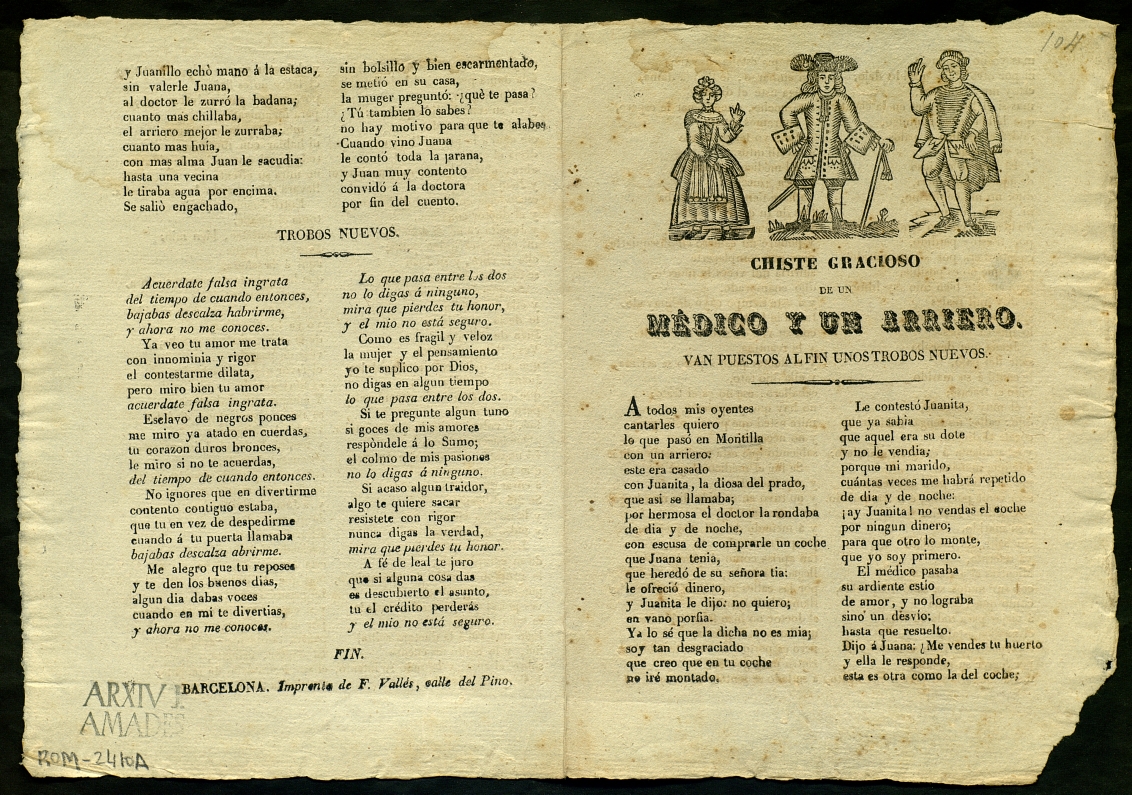 y Juanillo echò mano á la estaca,
sin valerle Juana,
al doctor le zurró la badana;
cuanto mas chillaba,
el arriero mejor le zurraba;
cuanto mas huía,
con mas alma Juan le sacudia:
hasta una vecina
le tiraba agua por encima.
Se salió engachado,
sin bolsillo y bien escarmentado,
se metió en su casa,
la muger preguntó: ¿què te pasa?
¿Tú tambien lo sabes?
no hay motivo para que te alabes
Cuando vino Juana
le contó toda la jarana,
y Juan muy contento
convidó á la doctora
por fin del cuento.
TROBOS NUEVOS.
Acuerdate falsa ingrata
del tiempo de cuando entonces,
bajabas descalza habrirme,
y ahora no me conoces.
Ya veo tu amor me trata
con innominia y rigor
el contestarme dilata,
pero miro bien tu amor
acuerdate falsa ingrata.
Esclavo de negros ponces
me miro ya atado en cuerdas,
tu corazon duros bronces,
le miro si no te acuerdas,
del tiempo de cuando entonces.
No ignores que en divertirme
contento contiguo estaba,
que tu en vez de despedirme
cuando á tu puerta llamaba
bajabas descalza abrirme.
Me alegro que tu reposes
y te den los buenos dias,
algun dia dabas voces
cuando en mi te divertias,
y ahora no me conoces.
Lo que pasa entre los dos
no lo digas á ninguno,
mira que pierdes tu honor,
y el mio no está seguro.
Como es fragil y veloz
la mujer y el pensamiento
yo te suplico por Dios,
no digas en algun tiempo
lo que pasa entre los dos.
Si te pregunte algun tuno
si goces de mis amores
respòndele á lo Sumo;
el colmo de mis pasiones
no lo digas á ninguno.
Si acaso algun traidor,
algo te quiere sacar
resistete con rigor
nunca digas la verdad,
mira que pierdes tu honor.
A fé de leal te juro
que si alguna cosa das
es descubierto el asunto,
tu el crédito perderás
y el mio no está seguro.
FIN.
BARCELONA. Imprenta de F. Vallés, calle del Pino.
ARXIV J.
AMADES
ROM-2410A
104
CHISTE GRACIOSO
DE UN
MÉDICO Y UN ARRIERO.
VAN PUESTOS AL FIN UNOS TROBOS NUEVOS.
A todos mis oyentes
cantarles quiero
lo que pasó en Montilla
con un arriero:
este era casado
con Juanita, la diosa del prado,
que asi se llamaba;
por hermosa el doctor la rondaba
de dia y de noche,
con escusa de comprarle un coche
que Juana tenia,
que heredó de su señora tia:
le ofreció dinero,
y Juanita le dijo: no quiero;
en vano porfia.
Ya lo sé que la dicha no es mia;
soy tan desgraciado
que creo que en tu coche
no iré montado.
Le contestó Juanita,
que ya sabia
que aquel era su dote
y no le vendia;
porque mi marido,
cuántas veces me habrá repetido
de dia y de noche:
¡ay Juanita! no vendas el coche
por ningun dinero;
para que otro lo monte,
que yo soy primero.
El médico pasaba
su ardiente estio
de amor, y no lograba
sino un desvio;
hasta que resuelto.
Dijo á Juana: ¿Me vendes tu huerto
y ella le responde,
esta es otra como la del coche;